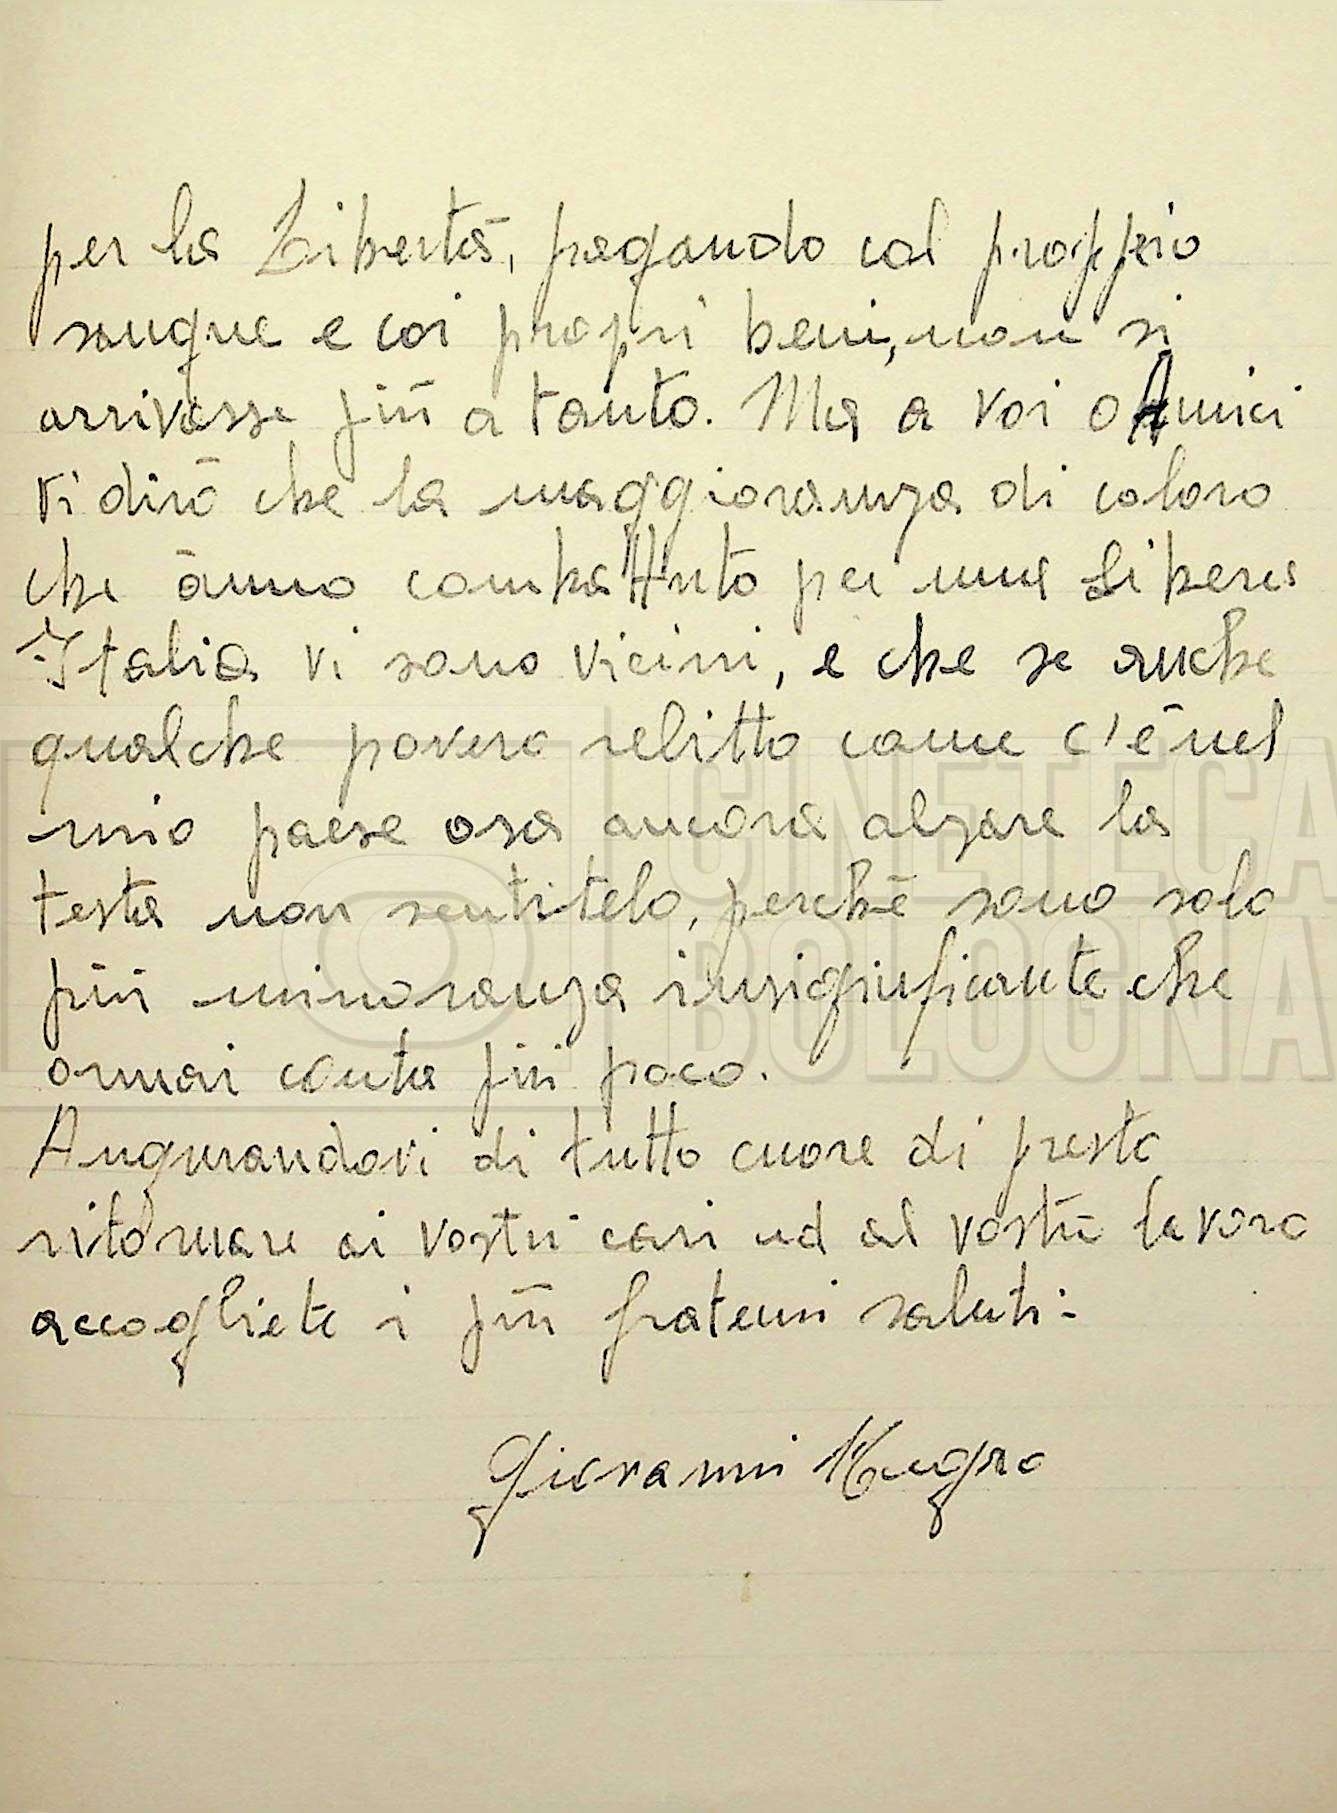 per la Libertà, pagando col proppio
sangue e coi propri beni, non si
arrivasse più a tanto. Ma a voi o Amici
vi dirò che la maggioranza di coloro
che ànno combattuto per una Libera
Italia vi sono vicini, e che se anche
qualche povero relitto come c'è nel
mio paese osa ancora alzare la
testa non sentitelo, perchè sono solo
più minoranza insignificante che
ormai conta più poco.
Augurandovi di tutto cuore di presto
ritornare ai vostri cari ed al vostro lavoro
accogliete i più fraterni saluti:
Giovanni
CINETECA
BOLOGNA